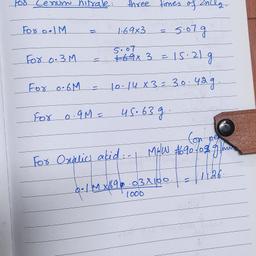 For Cerium nitrate: three times of ZnCl2.
For 0.1M = 1.69x3 = 5.07g
For 0.3M = 5.07 x 3 = 15.21g
For 0.6M = 10.14 x 3 = 30.42g
For 0.9M = 45.63g.
For Oxalic acid :- MHW 90.03g
0.1Mx 90.03x100 / 1000 = 1.26